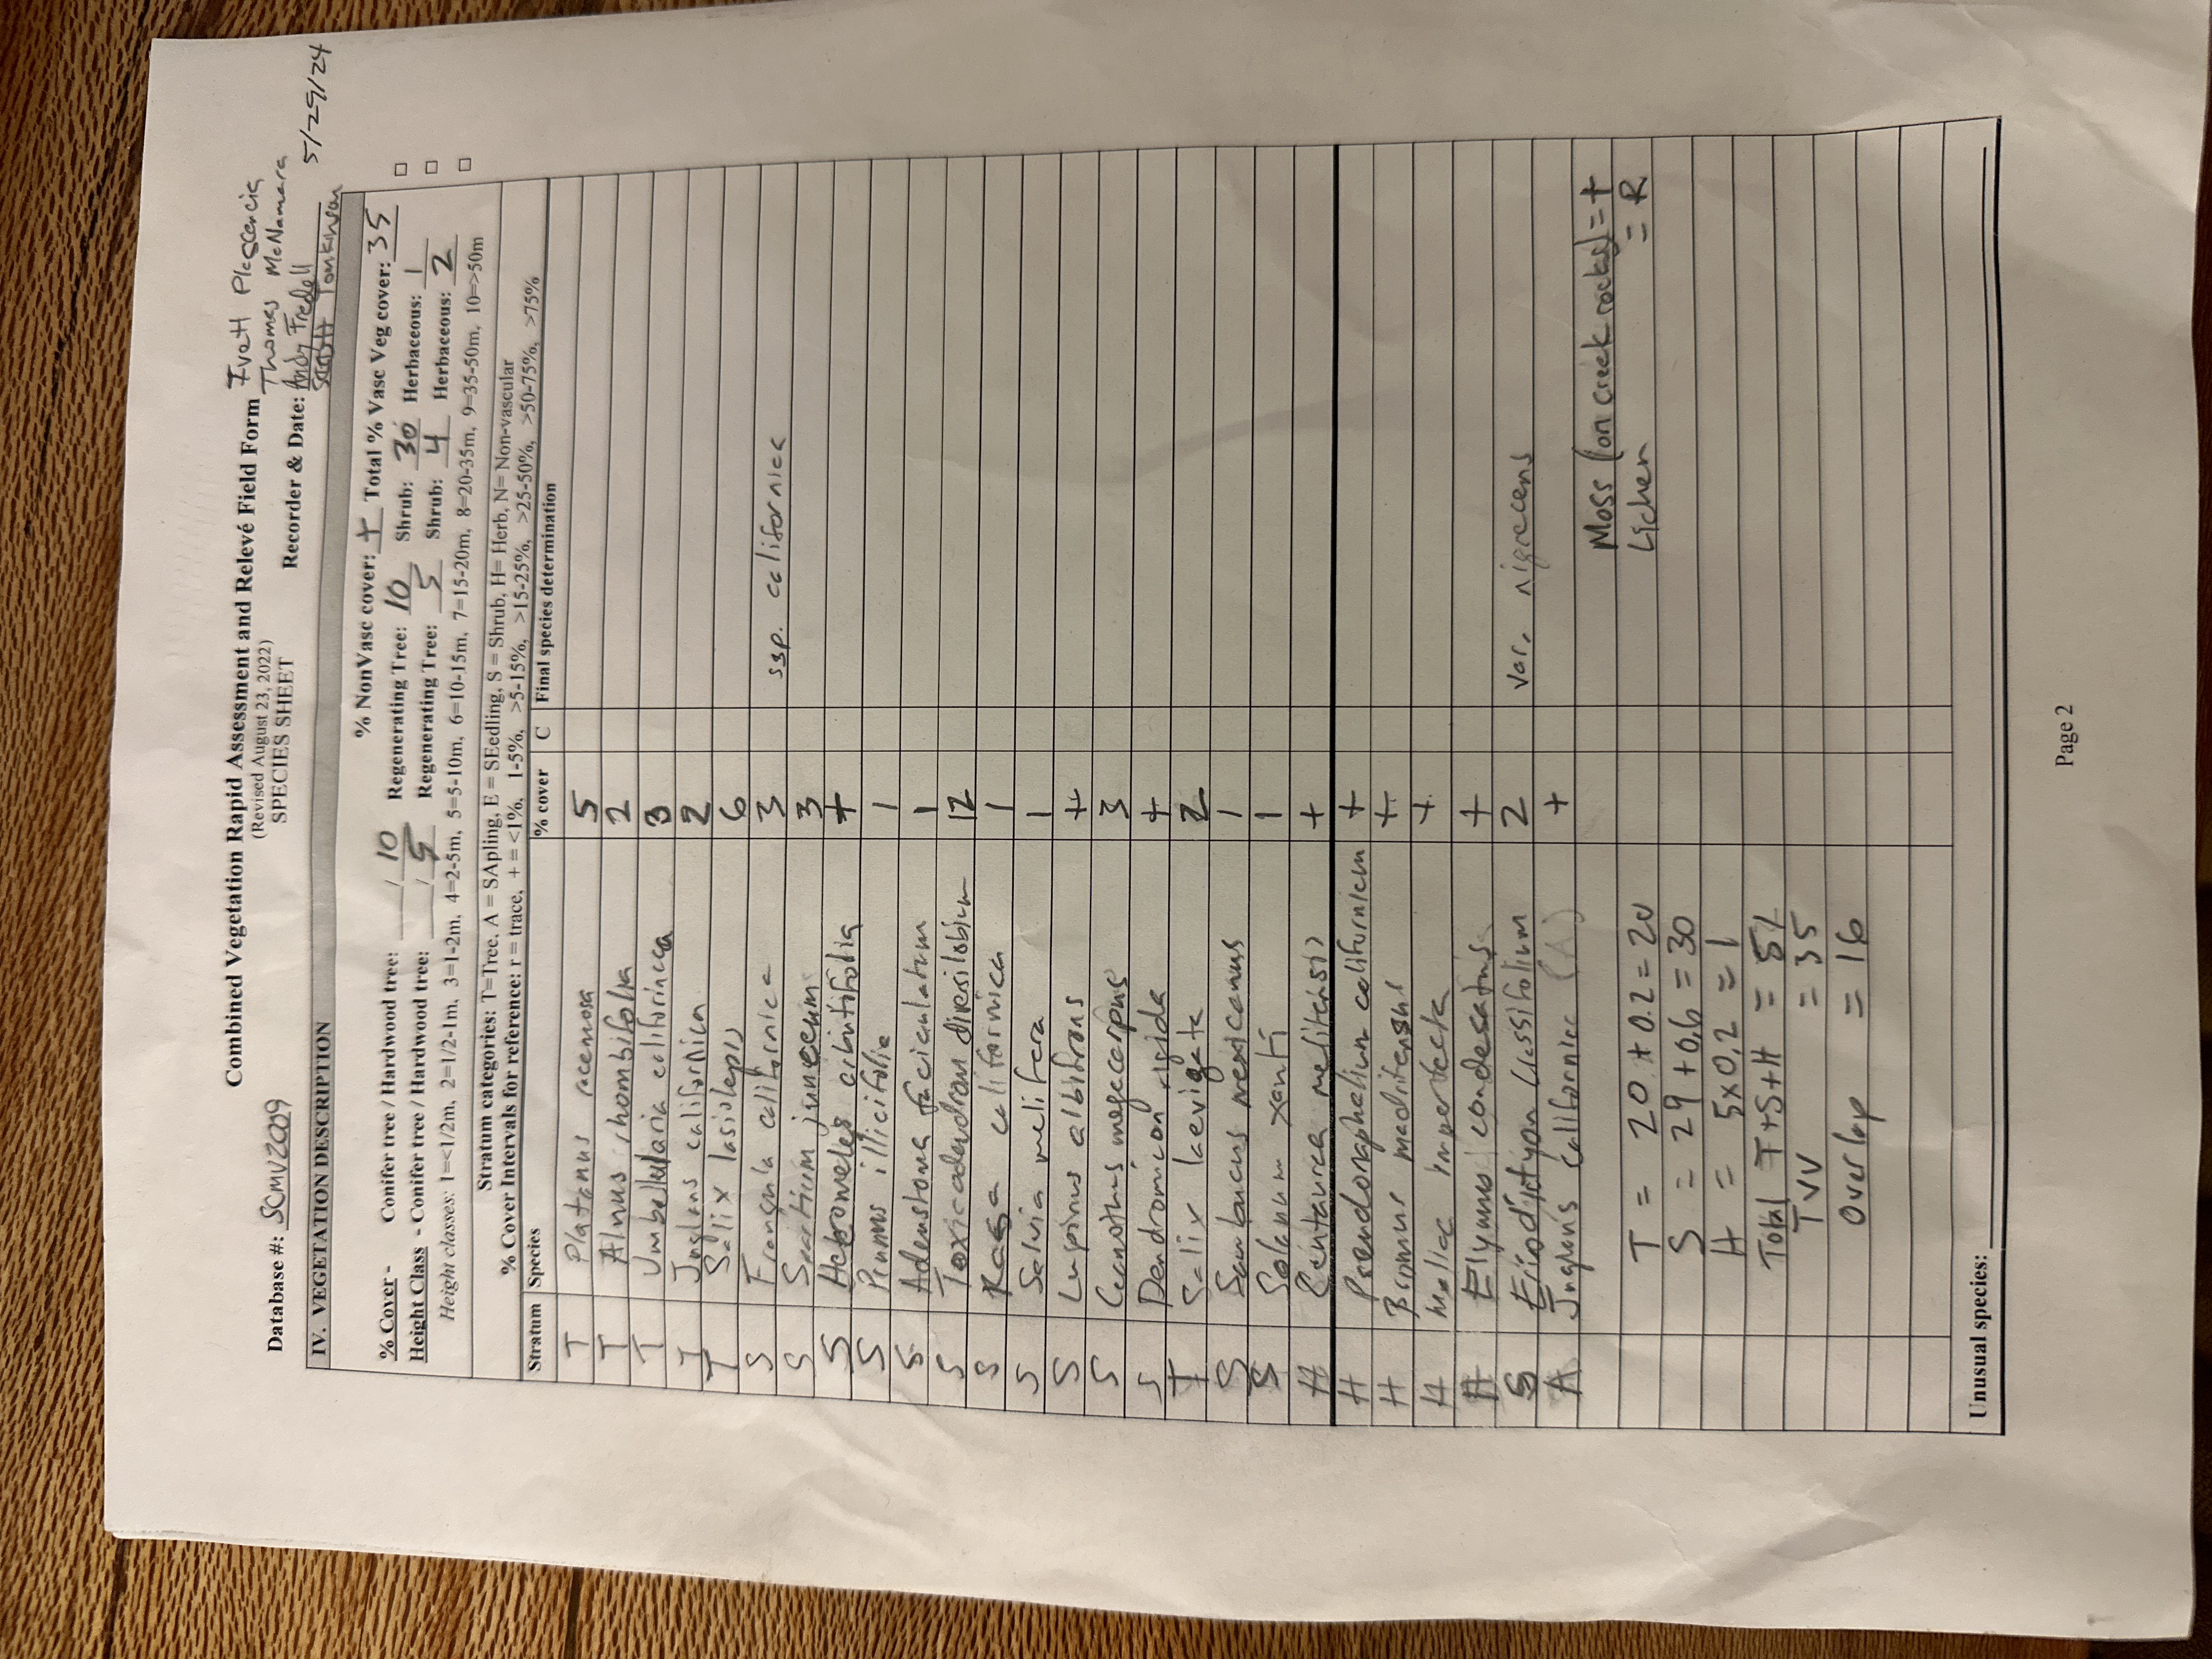 Combined Vegetation Rapid Assessment and Relevé Field Form
(Revised August 23, 2022)
SPECIES SHEET
Ivett Plascencia
Thomas McNamara
Database #: SCMV2009 Recorder & Date: Andy Fredell 5/29/24
Scott Tomkinson
IV. VEGETATION DESCRIPTION
% NonVasc cover: + Total % Vasc Veg cover: 35
% Cover - Conifer tree / Hardwood tree: / 10 Regenerating Tree: 10 Shrub: 30 Herbaceous: 1
Height Class - Conifer tree / Hardwood tree: / 5 Regenerating Tree: 5 Shrub: 4 Herbaceous: 2
Height classes: 1=<1/2m, 2=1/2-1m, 3=1-2m, 4=2-5m, 5=5-10m, 6=10-15m, 7=15-20m, 8=20-35m, 9=35-50m, 10=>50m
Stratum categories: T=Tree, A = SApling, E = SEedling, S = Shrub, H= Herb, N= Non-vascular
% Cover Intervals for reference: r = trace, + = <1%, 1-5%, >5-15%, >15-25%, >25-50%, >50-75%, >75%
Stratum Species % cover C Final species determination
T Platanus racemosa 5
T Alnus rhombifolia 2
T Umbellularia californica 3
T Juglans californica 2
T Salix lasiolepis 6
S Frangula californica 3 ssp. californica
S Spartium junceum 3
S Heteromeles arbutifolia +
S Prunus illicifolia 1
S Adenostoma faciculatum 1
S Toxicodendron diversilobium 12
S Rosa californica 1
S Salvia melifera 1
S Lupinus albifrons +
S Ceanothus megacarpus 3
S Dendromicon rigida +
T Salix laevigata 2
S Sambucus mexicanus 1
S Solanum xanti 1
H Centaurea melitensis +
H Pseudognaphalium californicum +
H Bromus madritensis +
H Melica imperfecta +
H Elymus condesatus +
S Eriodictyon crassifolium 2 var. nigrescens
A Juglans californica (A) +
Moss (on creek rocks) = +
T = 20 + 0.2 = 20 Lichen = R
S = 29 + 0.6 = 30
H = 5x0.2 = 1
Total T+S+H = 51
TVV = 35
Overlap = 16
Unusual species:
Page 2